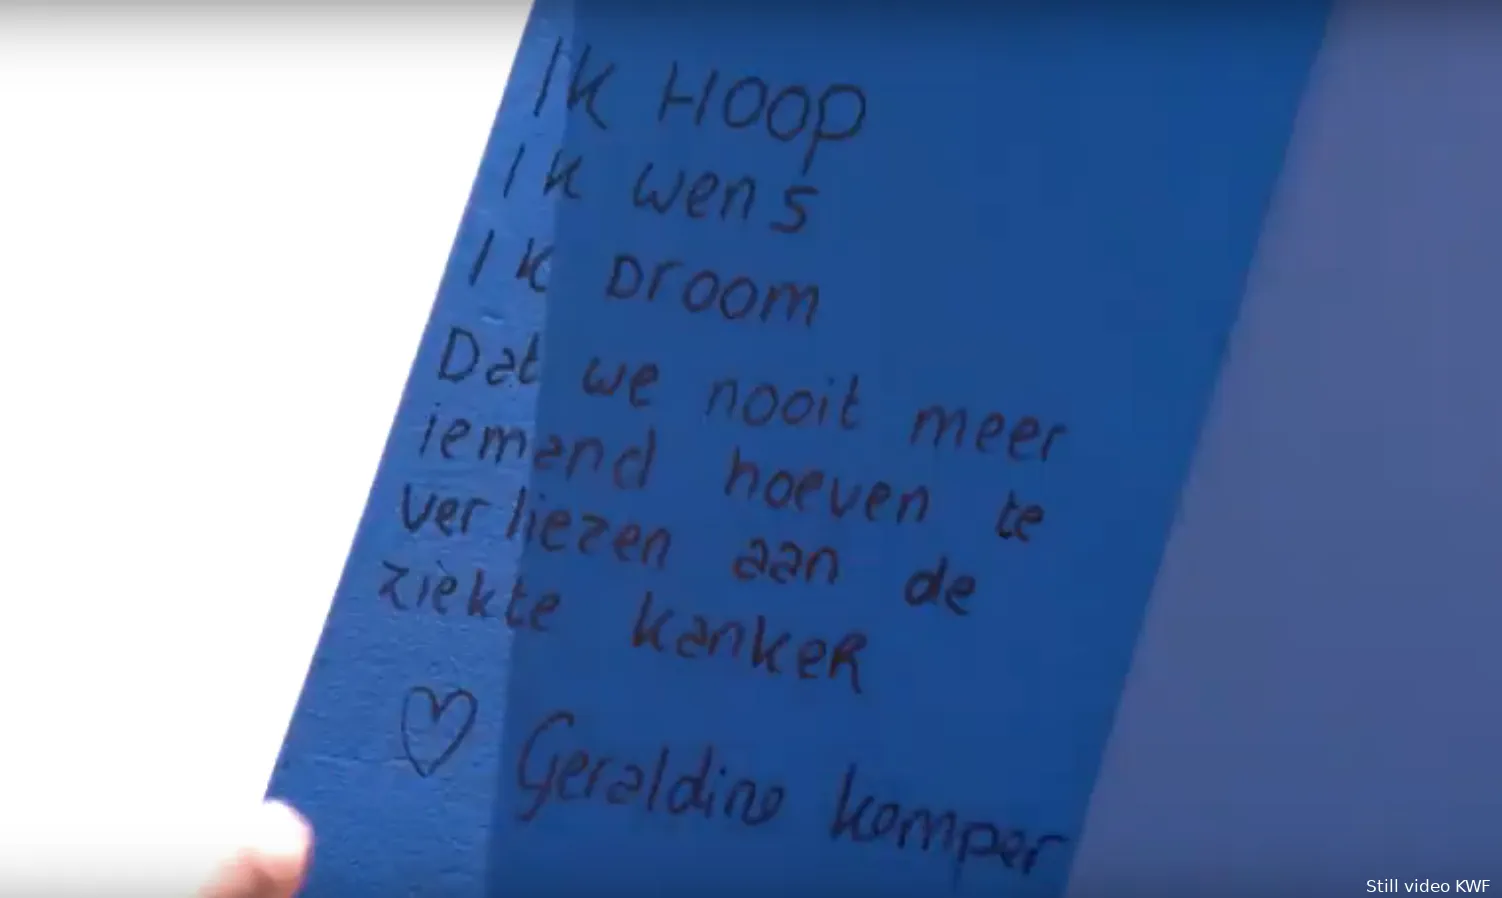 IK HOOP
IK wens
IK Droom
Dat we nooit meer
iemand hoeven te
verliezen aan de
ziekte kankeR
♡ Geraldine kemper
Still video KWF